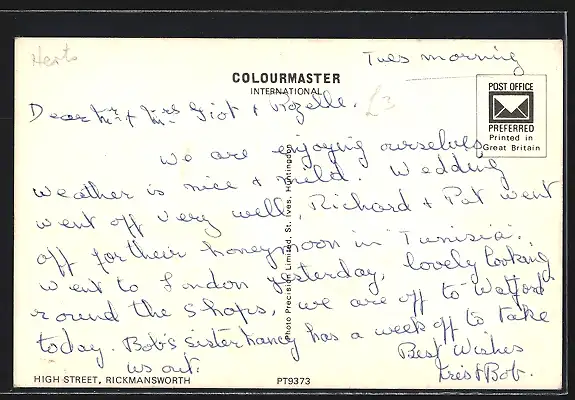 Herts
Tues morning
COLOURMASTER
INTERNATIONAL
POST OFFICE
PREFERRED
Printed in
Great Britain
£3
Dear Mr & Mrs Giot & Rozelle.
We are enjoying ourselves,
weather is nice & mild. Wedding
went off very well, Richard & Pat went
off for their honeymoon in Tunisia.
Went to London yesterday, lovely looking
round the shops, we are off to Watford
today. Bob's sister Nancy has a week off to take
us out.
Best Wishes
Iris & Bob.
Photo Precision Limited, St. Ives, Huntingdon
HIGH STREET, RICKMANSWORTH
PT9373